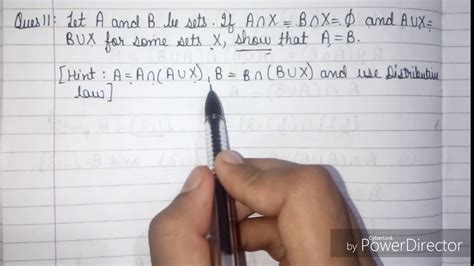 Ques 11: Let A and B be sets. If A∩X = B∩X = ϕ and A∪X =
B∪X for some sets X, show that A = B.
[Hint: A = A∩(A∪X), B = B∩(B∪X) and use Distributive
law]
CyberLink
by PowerDirector